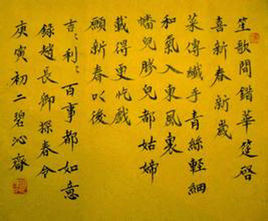 笙歌間錯華筵啓
喜新春新歲
菜傳纖手青絲輕細
和氣入東風裏
幡兒勝兒都姑媂
戴得更忔戲
願新春以後
吉〻利〻百事都如意
録趙長卿探春令
庚寅初二碧沁齋